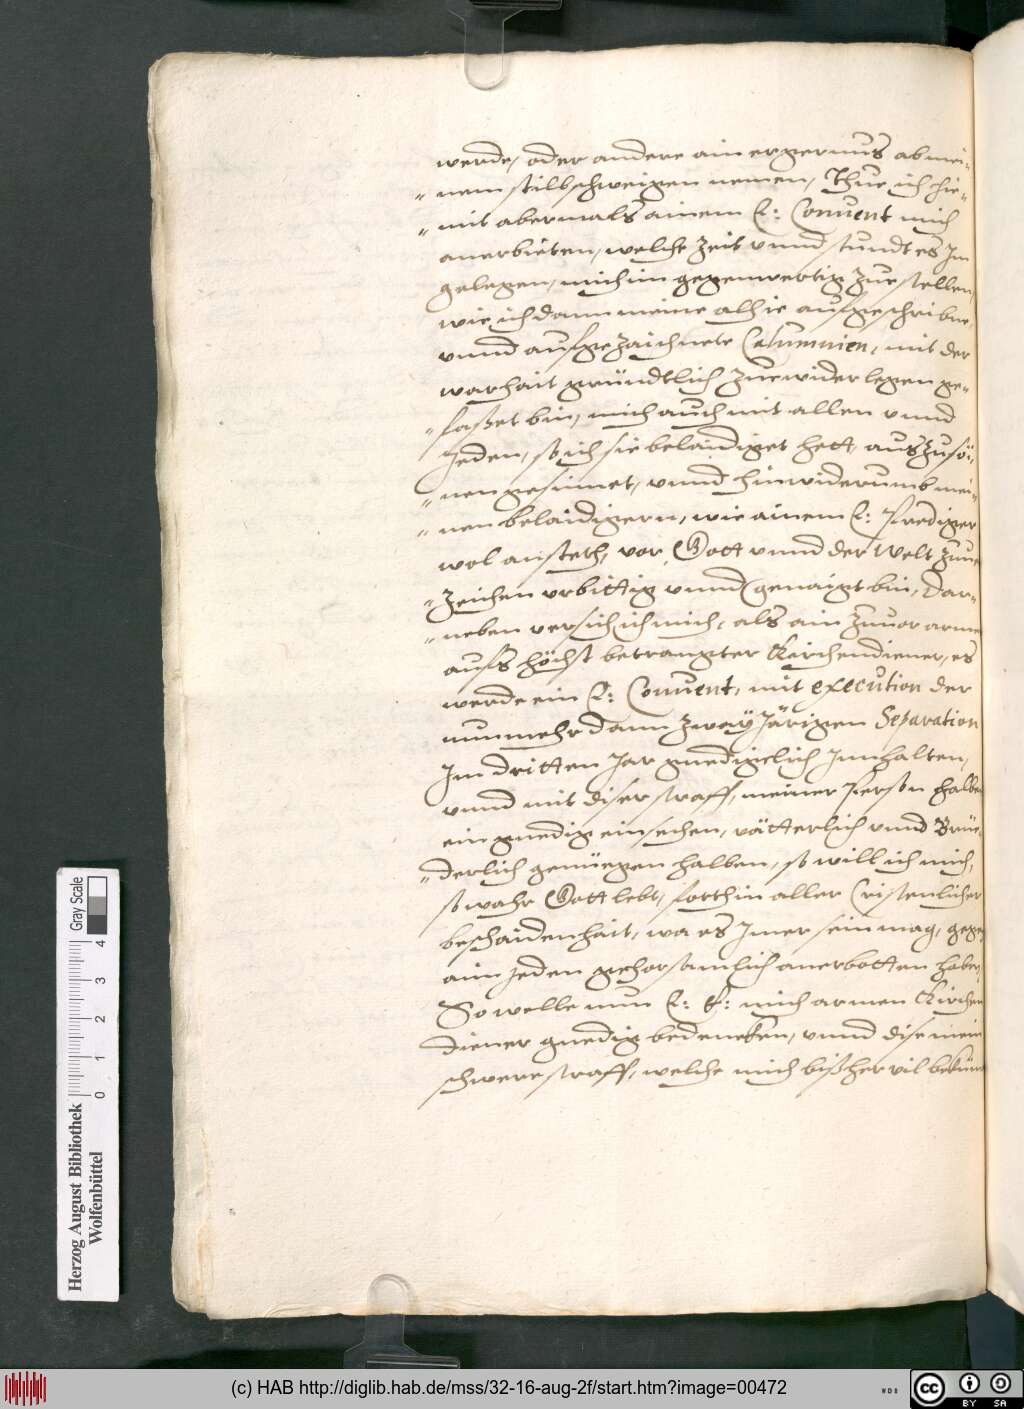 werde, oder andere ain ergernus ab mei-
nem stillschweigen nemen, Thue ich hie-
mit abermals ainem E: Convent mich
anerbieten, welche Zeit vnnd stundt es Jm
gelegen, mich im gegenwertig zue stellen,
wie ich dann meine alhie aufgeschribne,
vnnd aufgezaichnete Calumnien, mit der
warhait gründtlich zue widerlegen ge-
faßet bin, mich auch mit allen vnnd
Jeden, so ich sie belaidiget hett, auszusöi-
nen gesinnet, vnnd hinwiderumb mei-
nen belaidigern, wie ainem E: Prediger
wol ansteth, vor Gott vnnd der Welt zuuer
Zeichen vrbittig vnnd genaigt bin, Dar-
neben versich ich mich, als ain zuuor armer
aufs höchst betrangter Kirchendiener, es
werde ein E: Convent, mit execution der
nunmehr dann zwayJärigen Separation
Jm dritten Jar gnedigclich Jnnhalten,
vnnd mit diser straff, meiner Person halben
ein gnedig einsechen, vätterlich vnnd Brüe-
derlich genüegen halben, so will ich mich,
so wahr Gott lebt, forthin aller Cristenlicher
beschaidenhait, wa es Jmer sein mag, gegen
aim Jeden gehorsamlich anerbotten haben,
So welle nun E: E: mich armen Kirchen
diener gnedig bedencken, vnnd dise mein
schwere straff, welche mich bißher vil beküm
Herzog August Bibliothek
Wolfenbüttel
Gray Scale
0 1 2 3 4
(c) HAB http://diglib.hab.de/mss/32-16-aug-2f/start.htm?image=00472
WDB
cc BY SA